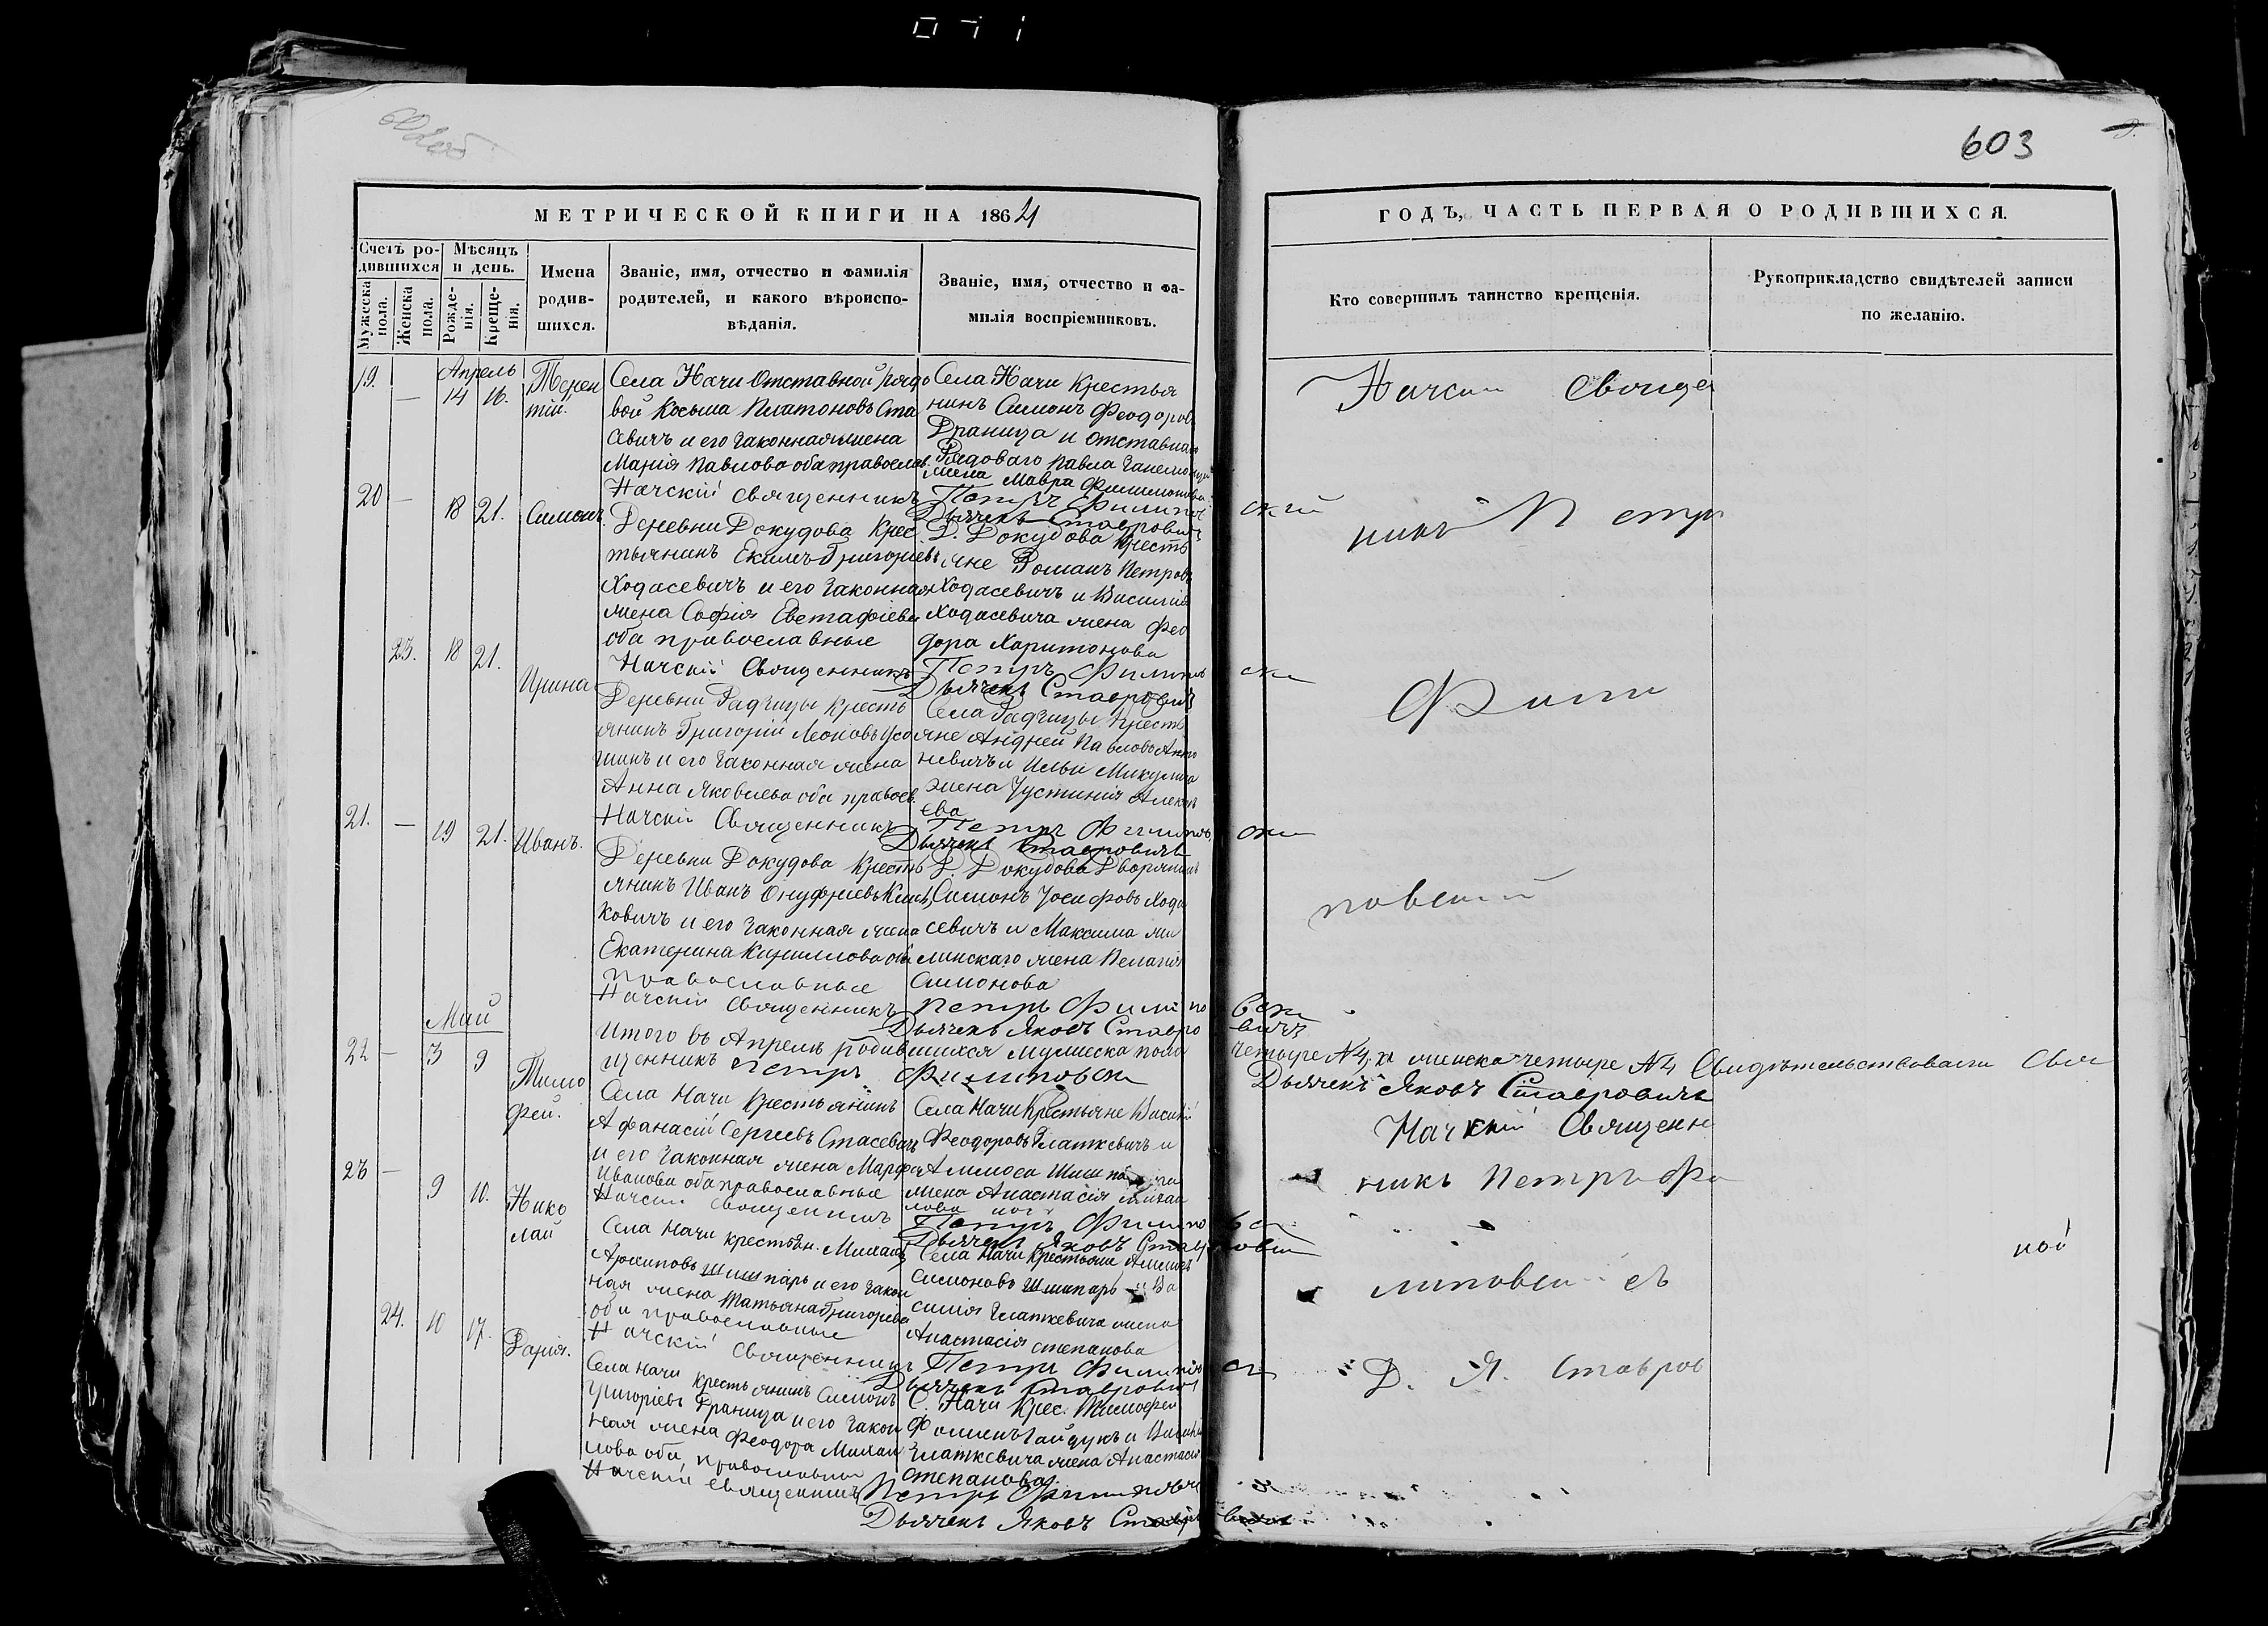 603
МЕТРИЧЕСКОЙ КНИГИ НА 1864
ГОДЪ, ЧАСТЬ ПЕРВАЯ О РОДИВШИХСЯ.
Счетъ ро-
дившихся
Мужеска
пола.
Женска
пола.
Мѣсяцъ
и день.
Рожде-
нія.
Креще-
нія.
Имена
родив-
шихся.
Званіе, имя, отчество и фамилія
родителей, и какого вѣроиспо-
вѣданія.
Званіе, имя, отчество и фа-
милія воспріемниковъ.
Кто совершилъ таинство крещенія.
Рукоприкладство свидѣтелей записи
по желанію.
19.
Апрель
14 16.
Терен
тій.
Села Начи Отставной рядо
вой Косьма Платоновъ Ста
севичъ и его законная жена
Марія Павлова оба православ.
Начскій Священникъ
Села Начи Крестья
нинъ Симонъ Феодоров
Драница и отставнаго
Рядоваго Павла
жена Мавра Филимонова
Петръ Филипов
ский
Дьячекъ Ставровичъ
20 18 21. Симонъ.
Деревни Докудова Крес
тьянинъ Екимъ Григорьевъ
Ходасевичъ и его законная
жена Софія Евстафіева
оба православные
Начскій Священникъ
Д. Докудова Кресть
яне Романъ Петровъ
Ходасевичъ и Василія
Ходасевича жена Фео
дора Харитонова
Петръ Филипов
ски
Дьячекъ Ставровичъ
23. 18 21.
Ирина
Деревни Гафчицы Кресть
янинъ Григорій
и его законная жена
Анна Яковлева оба правосл.
Начскій Священникъ
Села Гафчицы Кресть
яне Андрей Павловъ Анто
невичъ и Ильи Микулича
жена Іустинія Алексѣ
ева
Петръ Филипов
ски
Дьячекъ Ставровичъ
21. 19 21. Иванъ.
Деревни Докудова Кресть
янинъ Иванъ Онуфріевъ
ковичъ и его законная жена
Екатерина Кириллова оба
православные
Начскій Священникъ
Д. Докудова Дворянинъ
Симонъ Іосифовъ Хода
севичъ и Максима жи
линскаго жена Пелагія
Симонова
Петръ Филипо
вски
Дьячекъ Яковъ Ставро
вичъ
Итого въ Апрелѣ родившихся мужеска пола четыре №4, и женска четыре №4 Свидѣтельствовали Свя
щенникъ Петръ Филиповски
Дьячекъ Яковъ Ставровичъ
Май
22 3 9
Тимо
фей.
Села Начи Крестьянинъ
Афанасій Сергеевъ Стасевичъ
и его законная жена Марфа
Иванова оба православные
Начскій Священникъ
Села Начи Крестьяне Василій
Феодоровъ Глаткевичъ и
Амоса Шишпара
жена Анастасія Михаи
лова
Петръ Филипо
вск
Дьячекъ Яковъ Ставровичъ
23 9 10.
Нико
лай
Села Начи крестьян. Михаилъ
Архиповъ Шишпаръ и его закон
ная жена Татьяна Григорьева
оба православные
Начскій Священникъ
Села Начи Крестьяне
Симоновъ Шишпаръ и Ва
силія Глаткевича жена
Анастасія Степанова
Петръ Филипов
ск
Дьячекъ Ставровичъ
24. 10 17.
Дарія.
Села Начи Крестьянинъ Симонъ
Григорьевъ Драница и его закон
ная жена Феодора Михаи
лова оба православные
Начскій Священникъ
С. Начи Крес. Тимофей
Фоминъ Гайдукъ и Василія
Глаткевича жена Анастасія
Степанова.
Петръ Филиповск
Дьячекъ Яковъ Ставровичъ
Начскій Свяще
никъ Петръ
Фили
повский
Начскій Священ
никъ Петръ Фи
липовский съ
Д. Я. Ставров